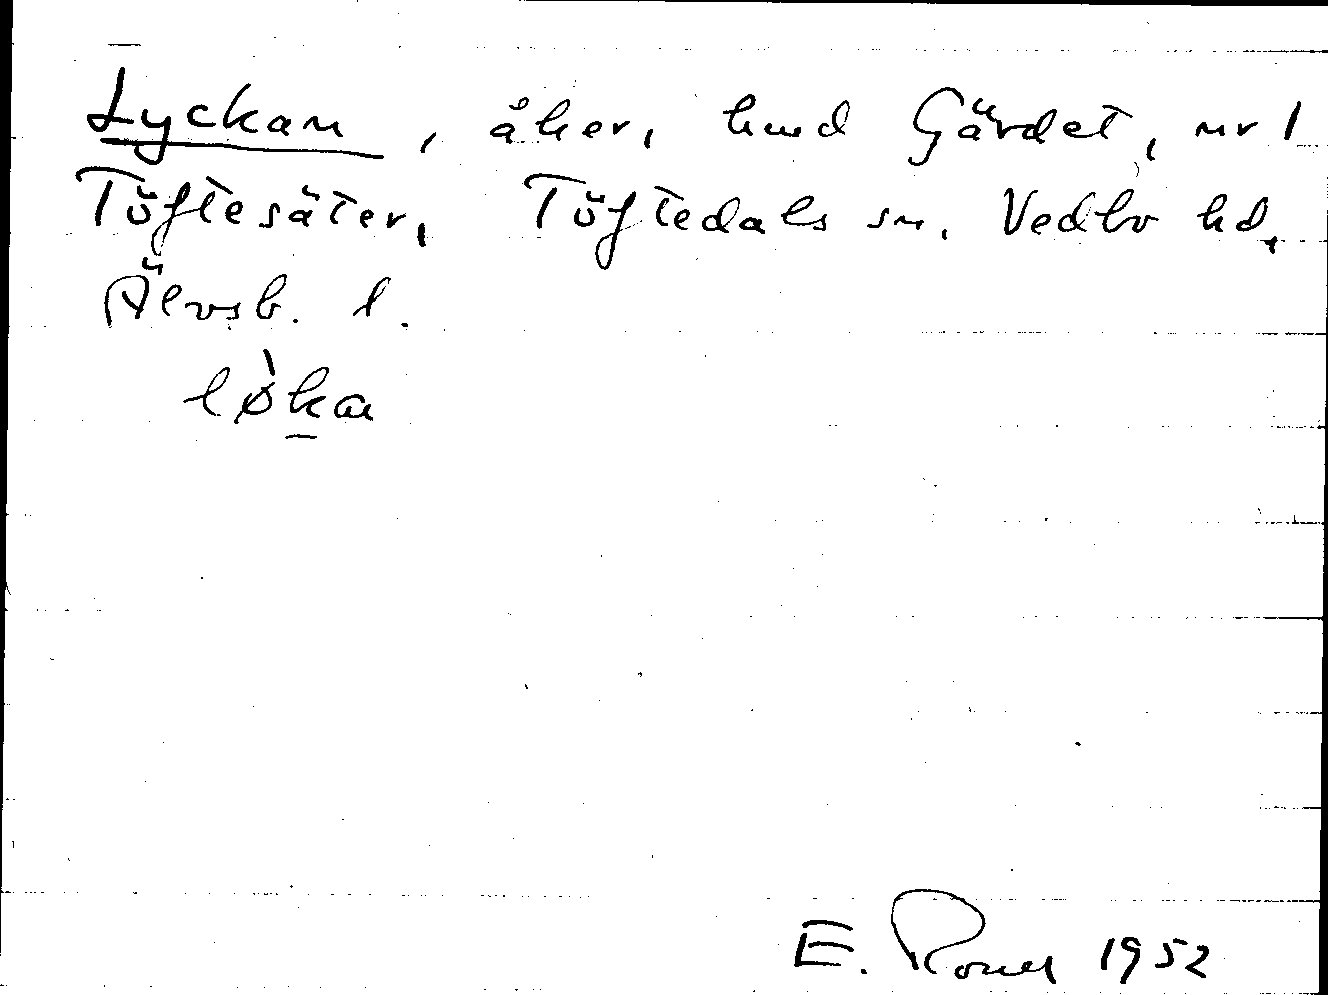 Lyckan, åker, hmd Gärdet, nr 1
Töftesäter, Töftedals sn, Vedbo hd,
Älvsb. l.
lø̀ka
E. 1952